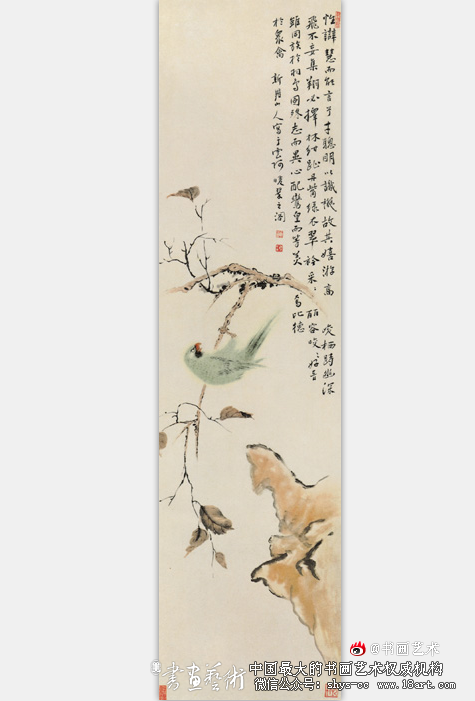 性辯慧而能言兮才聰明以識機故其嬉游高峻栖跱幽深
飛不妄集翔必擇林紺趾丹觜綠衣翠衿采〻麗容咬〻好音
雖同族於羽毛固殊志而異心配鸞皇而等美焉比德
於衆禽 月山人寫于雲
@书画艺术
書畫藝術
中国最大的书画艺术权威机构
微信公众号：shys-cc www.18art.com